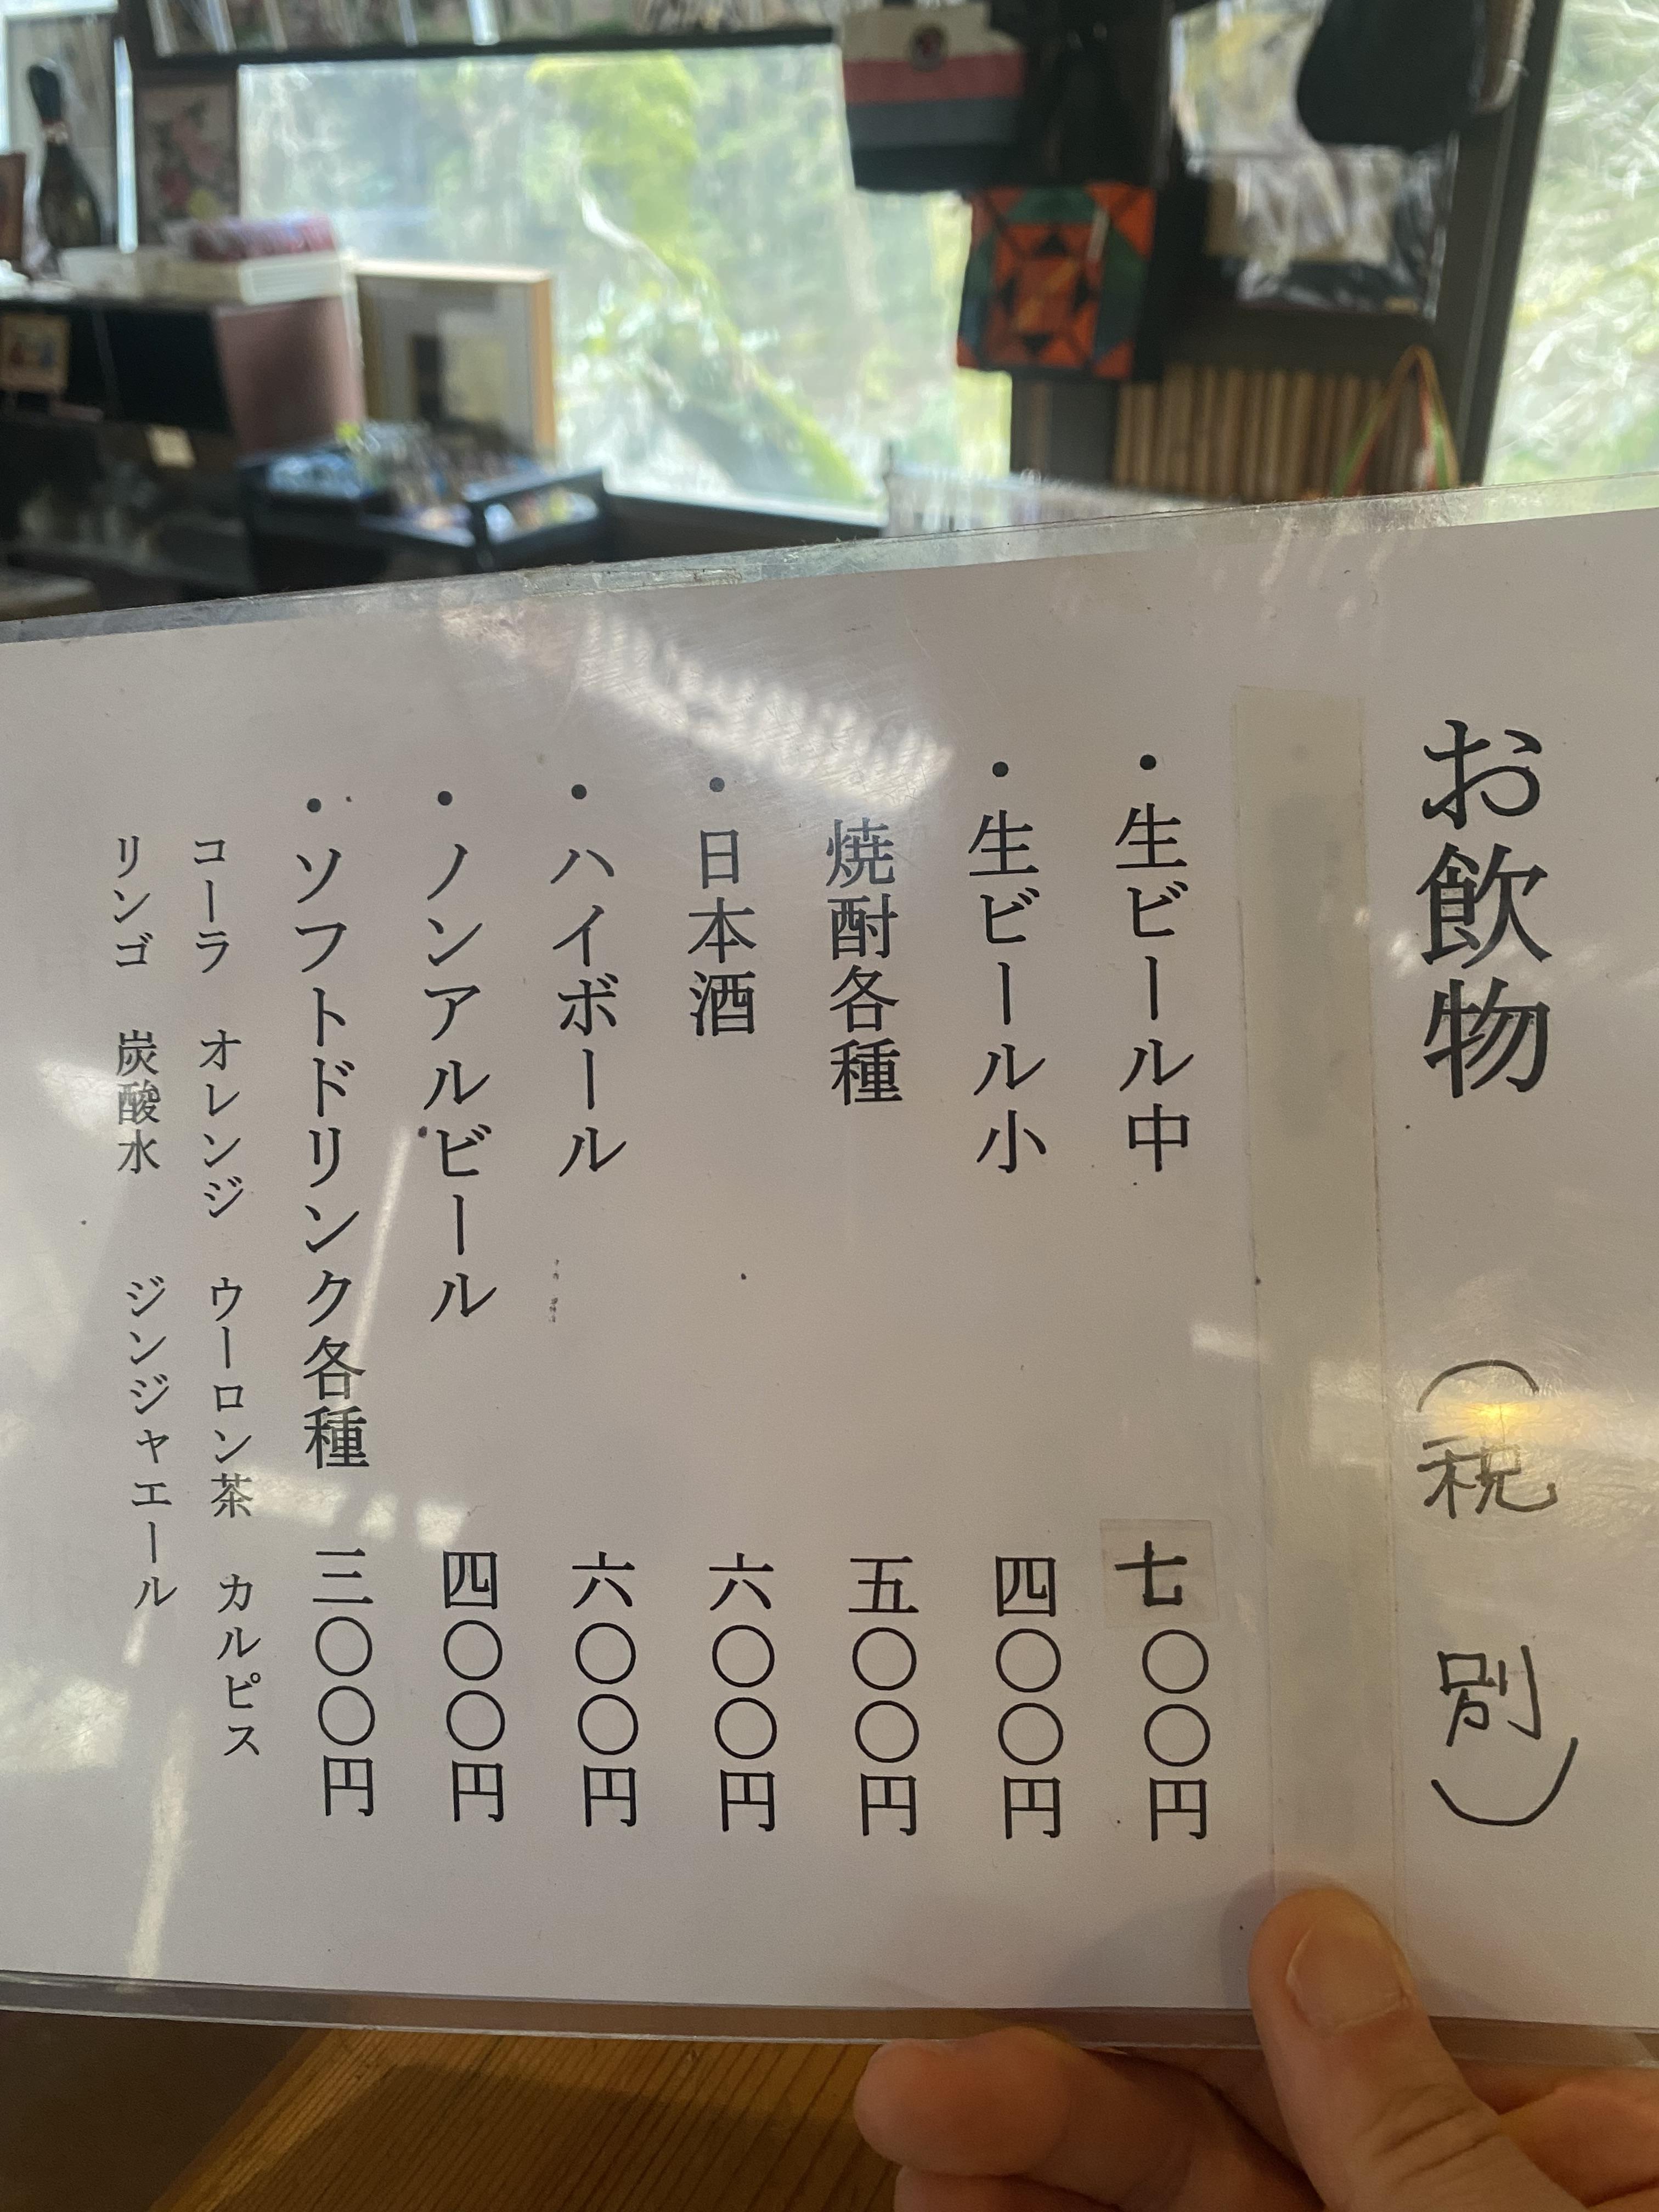 お飲物 （税別）
・生ビール中 七〇〇円
・生ビール小 四〇〇円
焼酎各種 五〇〇円
・日本酒 六〇〇円
・ハイボール 六〇〇円
・ノンアルビール 四〇〇円
・ソフトドリンク各種 三〇〇円
コーラ オレンジ ウーロン茶 カルピス
リンゴ 炭酸水 ジンジャエール